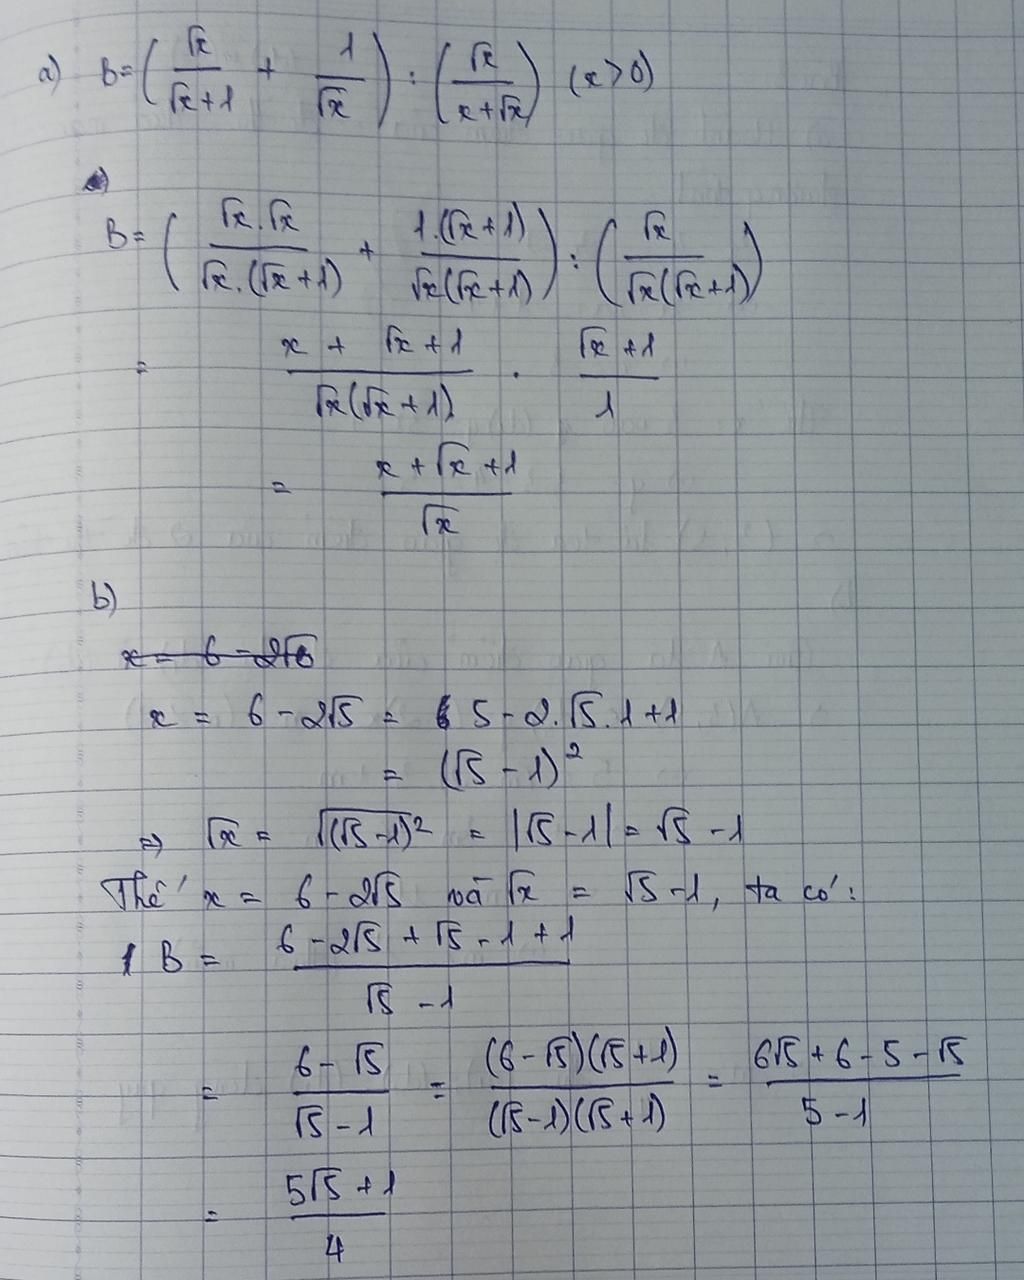 a) B = (√x/(√x+1) + 1/√x) : (√x/(x+√x)) (x>0)
B = (√x.√x/(√x.(√x+1)) + 1.(√x+1)/(√x(√x+1))) : (√x/(√x(√x+1)))
= (x + √x+1)/(√x(√x+1)) . (√x+1)/1
= (x+√x+1)/√x
b)
x = 6 - 2√5 = 5 - 2.√5.1+1
= (√5 - 1)²
⇒ √x = √((√5-1)²) = |√5-1| = √5 -1
Thế x = 6 - 2√5 và √x = √5-1, ta có:
B = (6 - 2√5 + √5 - 1 + 1)/(√5 - 1)
= (6-√5)/(√5-1) = (6-√5)(√5+1)/((√5-1)(√5+1)) = (6√5+6-5-√5)/(5-1)
= (5√5+1)/4